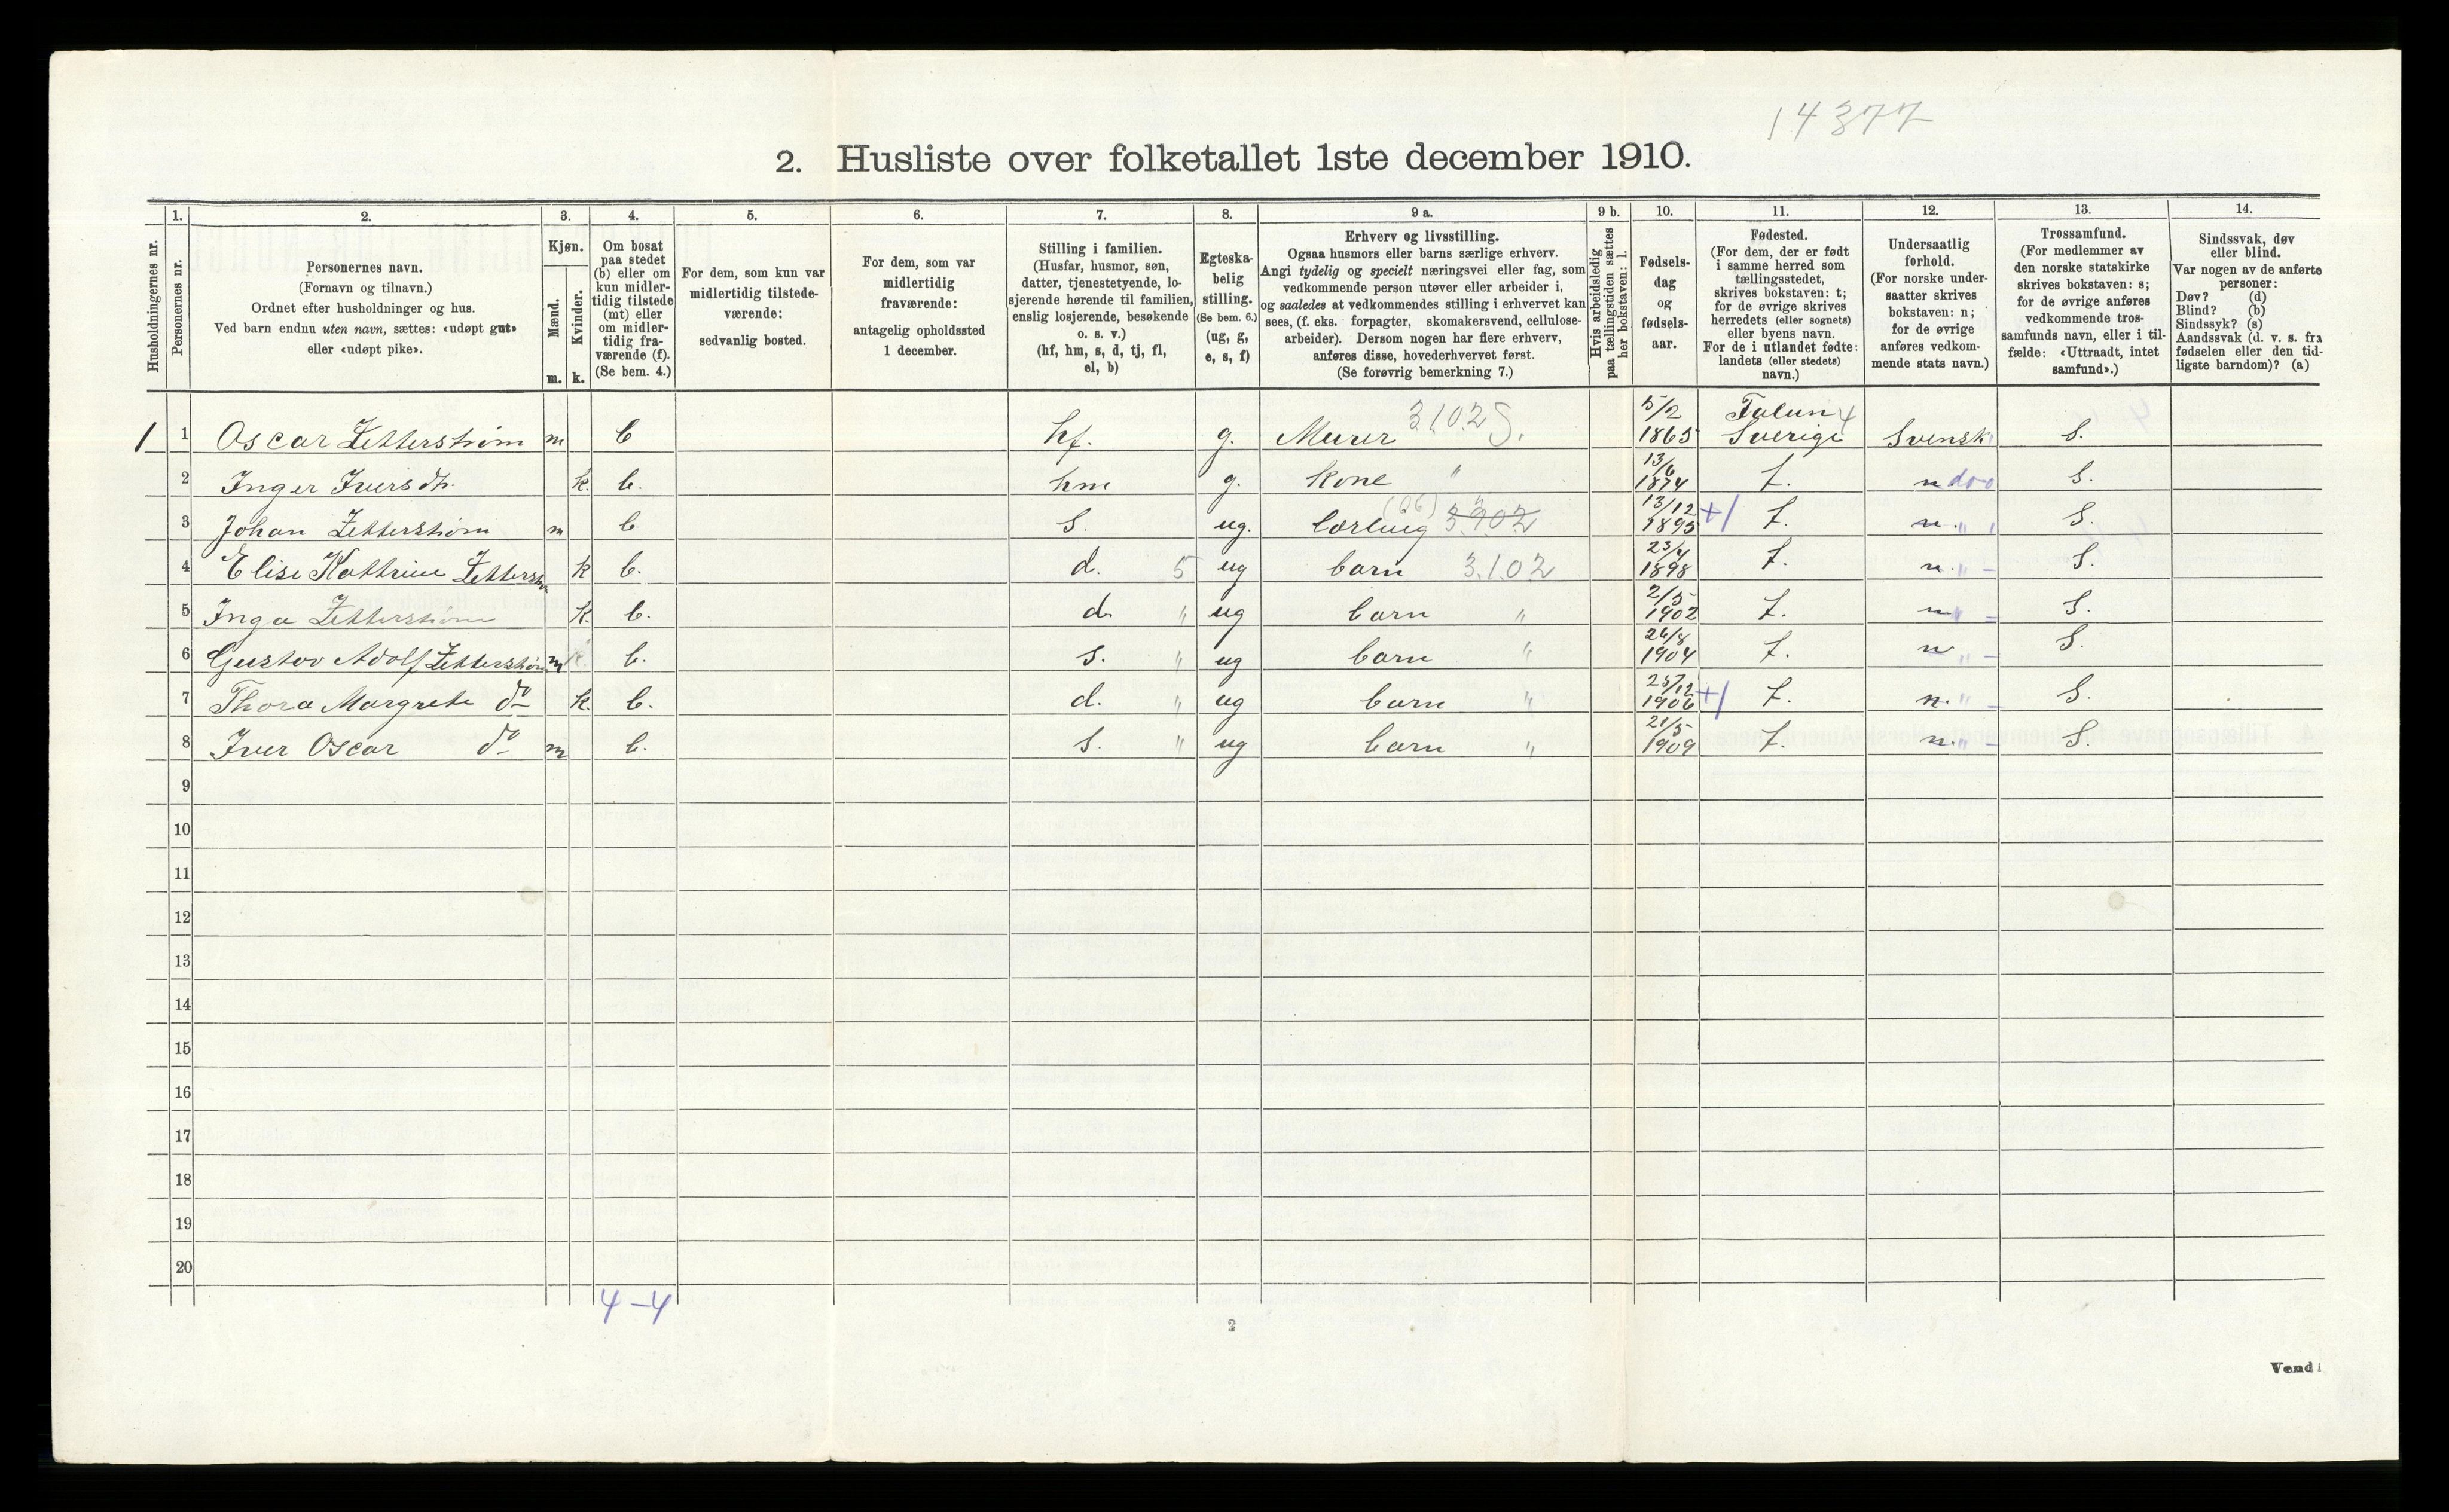 14377
2. Husliste over folketallet 1ste december 1910.
Husholdningernes nr.
1.
Personernes nr.
2.
Personernes navn.
(Fornavn og tilnavn.)
Ordnet efter husholdninger og hus.
Ved barn endnu uten navn, sættes: «udøpt gut»
eller «udøpt pike».
3.
Kjøn.
Mænd.
m.
Kvinder.
k.
4.
Om bosat
paa stedet
(b) eller om
kun midler-
tidig tilstede
(mt) eller
om midler-
tidig fra-
værende (f).
(Se bem. 4.)
5.
For dem, som kun var
midlertidig tilstede-
værende:
sedvanlig bosted.
6.
For dem, som var
midlertidig
fraværende:
antagelig opholdssted
1 december.
7.
Stilling i familien.
(Husfar, husmor, søn,
datter, tjenestetyende, lo-
sjerende hørende til familien,
enslig losjerende, besøkende
o. s. v.)
(hf, hm, s, d, tj, fl,
el, b)
8.
Egteska-
belig
stilling.
(Se bem. 6.)
(ug, g,
e, s, f)
9 a.
Erhverv og livsstilling.
Ogsaa husmors eller barns særlige erhverv.
Angi tydelig og specielt næringsvei eller fag, som
vedkommende person utøver eller arbeider i,
og saaledes at vedkommendes stilling i erhvervet kan
sees, (f. eks. forpagter, skomakersvend, cellulose-
arbeider). Dersom nogen har flere erhverv,
anføres disse, hovederhvervet først.
(Se forøvrig bemerkning 7.)
9 b.
Hvis arbeidsledig
paa tællingstiden sættes
her bokstaven: l.
10.
Fødsels-
dag
og
fødsels-
aar.
11.
Fødested.
(For dem, der er født
i samme herred som
tællingsstedet,
skrives bokstaven: t;
for de øvrige skrives
herredets (eller sognets)
eller byens navn.
For de i utlandet fødte:
landets (eller stedets)
navn.)
12.
Undersaatlig
forhold.
(For norske under-
saatter skrives
bokstaven: n;
for de øvrige
anføres vedkom-
mende stats navn.)
13.
Trossamfund.
(For medlemmer av
den norske statskirke
skrives bokstaven: s;
for de øvrige anføres
vedkommende tros-
samfunds navn, eller i til-
fælde: «Uttraadt, intet
samfund».)
14.
Sindssvak, døv
eller blind.
Var nogen av de anførte
personer:
Døv? (d)
Blind? (b)
Sindssyk? (s)
Aandssvak (d. v. s. fra
fødselen eller den tid-
ligste barndom)? (a)
1 1 Oscar Zetterstrøm m b hf. g. Murer 3102 S. 5/2 1865 Falun Sverige Svensk S.
2 Inger Iversdt. k. b. hm g. Kone " 13/6 1874 t. n S.
3 Johan Zetterstrøm m b S. ug. 3902 13/12 1895 t. n. S.
4 Elise Kathrine Zetterstrøm k b. d. 5 ug barn 3.1.02 23/4 1898 t. n. S.
5 Inga Zetterstrøm k. b. d. " ug barn " 2/5 1902 t. n S.
6 Gustav Adolf Zetterstrøm m b. S. " ug barn " 26/8 1904 t. n S.
7 Thora Margrete do k. b. d. " ug barn " 25/12 1906 t. n. S.
8 Iver Oscar do m b. S. " ug barn " 21/5 1909 t. n. S.
9
10
11
12
13
14
15
16
17
18
19
20
4 - 4
2
Vend!